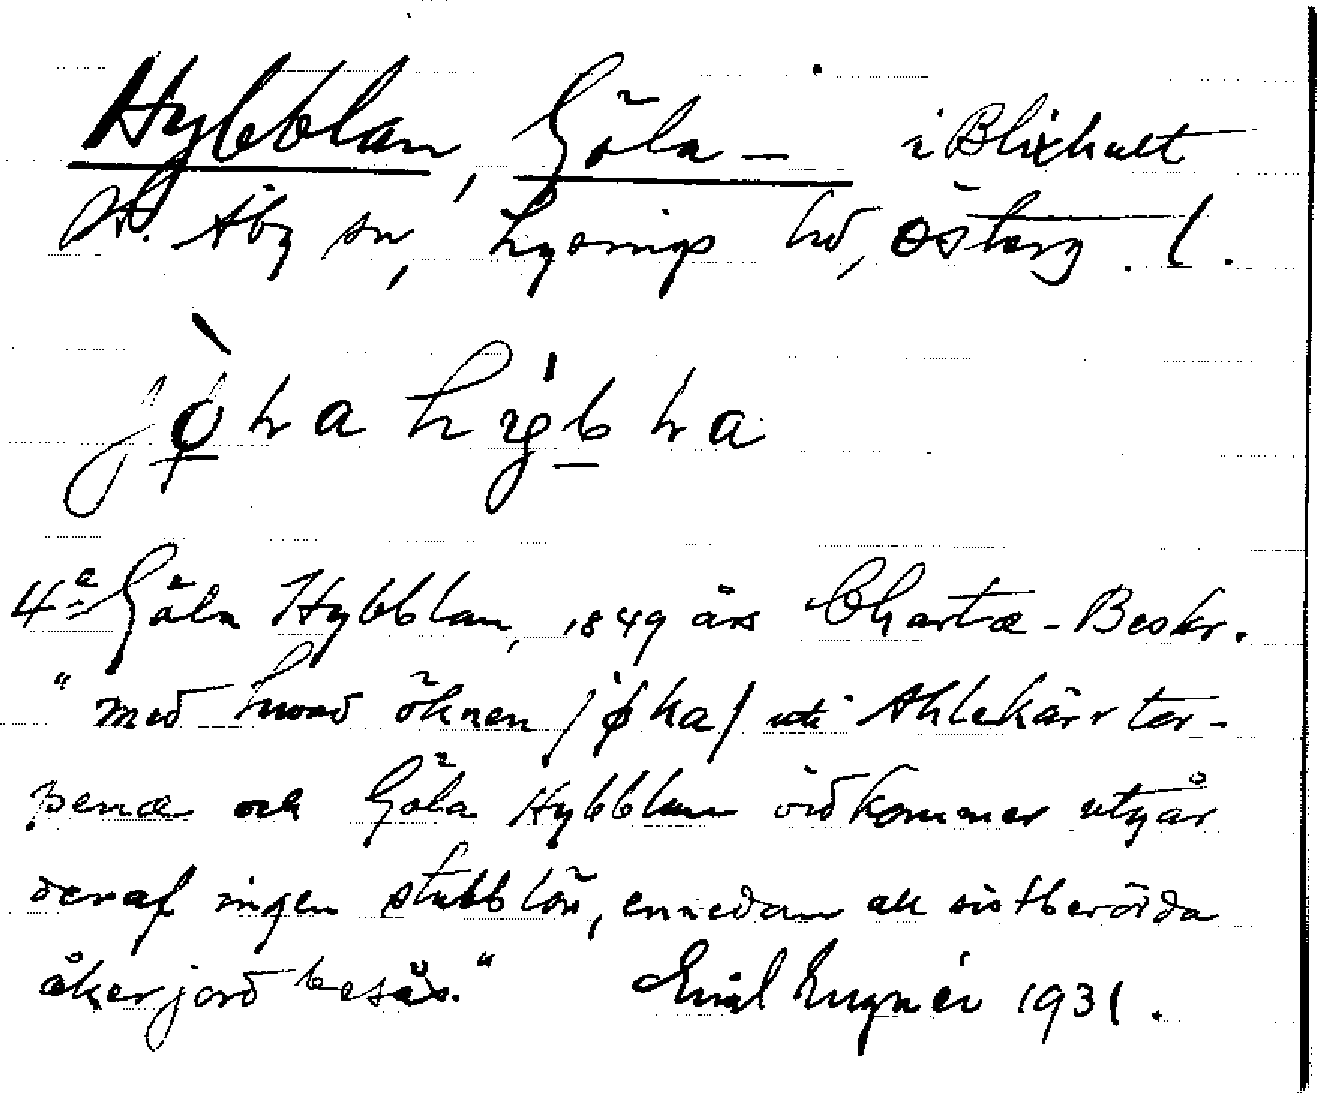 Hybblan, Göla - i Blixhult
St. Åby sn, Lysings hd, Österg. l.
4e Göla Hybblan, 1849 års Chartæ-Beskr.
"med hvad öknen /øka/ uti Ahlekärr tor-
penæ och Göla Hybblan vidkommer utgår
deraf ingen stubblön, emedan all sistberörda
åkerjord besås." Emil Eugnér 1931.